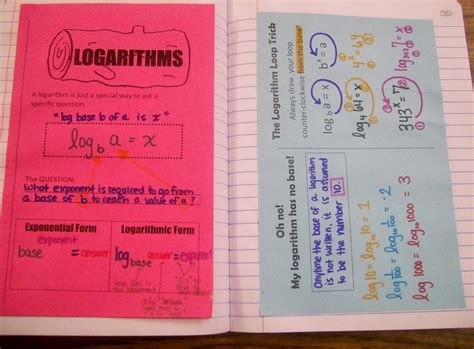 LOGARITHMS
A logarithm is just a special way to ask a
specific question.
"log base b of a is x"
log_b a = x
The QUESTION:
What exponent is required to go from
a base of b to reach a value of a?
Exponential Form Logarithmic Form
exponent
base = answer
log base answer = exponent
base goes to
the basement
a for answer
Oh no!
My logarithm has no base!
Anytime the base of a logarithm
is not written, it is assumed
to be the number 10.
log 10 = log₁₀ 10 = 1
log 1/100 = log₁₀ 1/100 = -2
log 1000 = log₁₀ 1000 = 3
The Logarithm Loop Trick
Always draw your loop
counter-clockwise from the base!
log_b a = x b^x = a
log₄ 64 = x 4^x = 64
343^x = 7 log₃₄₃ 7 = x